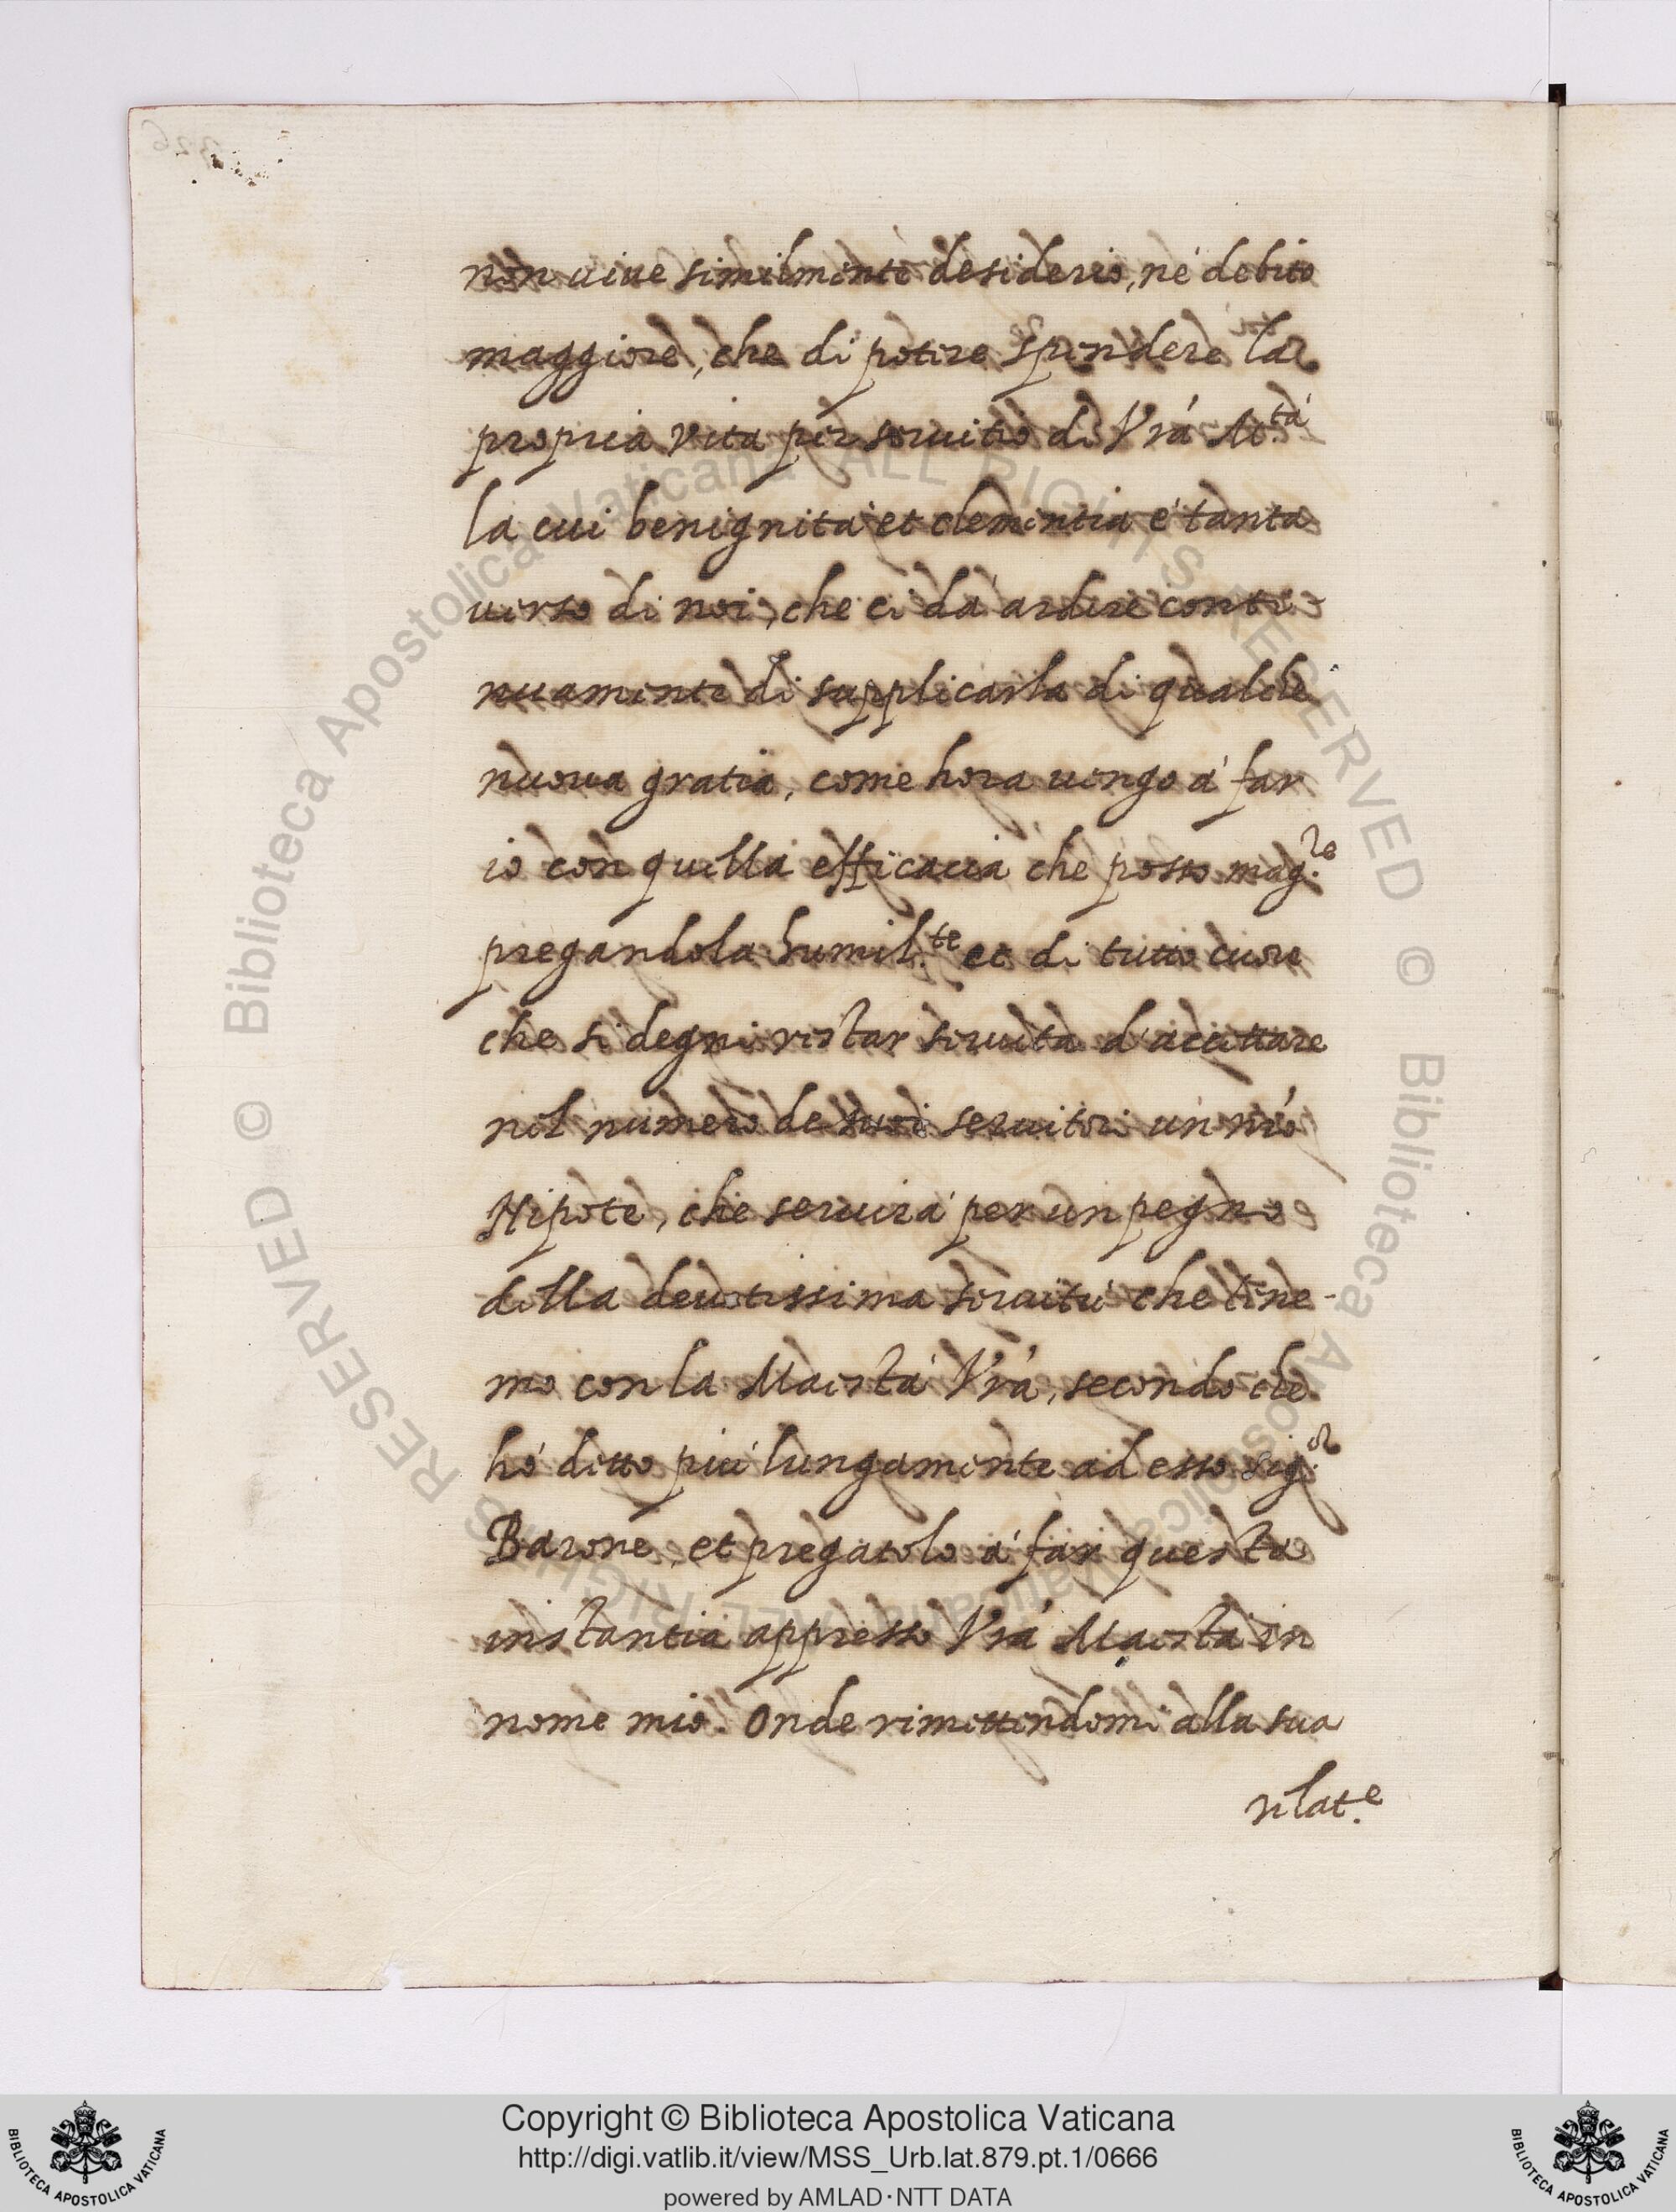 non uiue similmente desiderio, né debito
maggiore, che di potere spendere la
propria vita per seruitio di Vrá M.tá
la cui benignitá et clementia é tanta
uerso di noi, che ci dá ardire conti-
nuamente di supplicarla di qualche
nuoua gratia, come hora uengo á far
io con quella efficacia che posso mag.re
pregandola humil.te et di tutto cuore
che si degni restar seruita d'accettare
nel numero de suoi seruitori un mio
Nipote, che seruirá per un pegno
della deuotissima seruitú che tene-
mo con la Maestá Vrá, secondo che
hó detto piú lungamente ad esso sig.or
Barone, et pregatolo á far questa
instantia appresso Vrá Maestá in
nome mio. Onde rimettendomi alla sua
relat.e
© Biblioteca Apostolica Vaticana ALL RIGHTS RESERVED © Biblioteca Apostolica Vaticana ALL RIGHTS RESERVED
BIBLIOTECA APOSTOLICA VATICANA
Copyright © Biblioteca Apostolica Vaticana
http://digi.vatlib.it/view/MSS_Urb.lat.879.pt.1/0666
powered by AMLAD·NTT DATA
BIBLIOTECA APOSTOLICA VATICANA